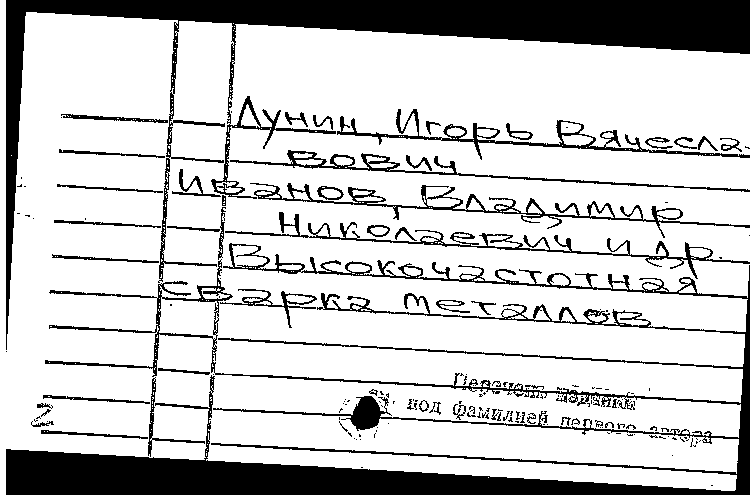 Лунин, Игорь Вячесла-
вович
Иванов, Владимир
Николаевич и др.
Высокочастотная
сварка металлов
Перечень изданий
см. под фамилией первого автора
2